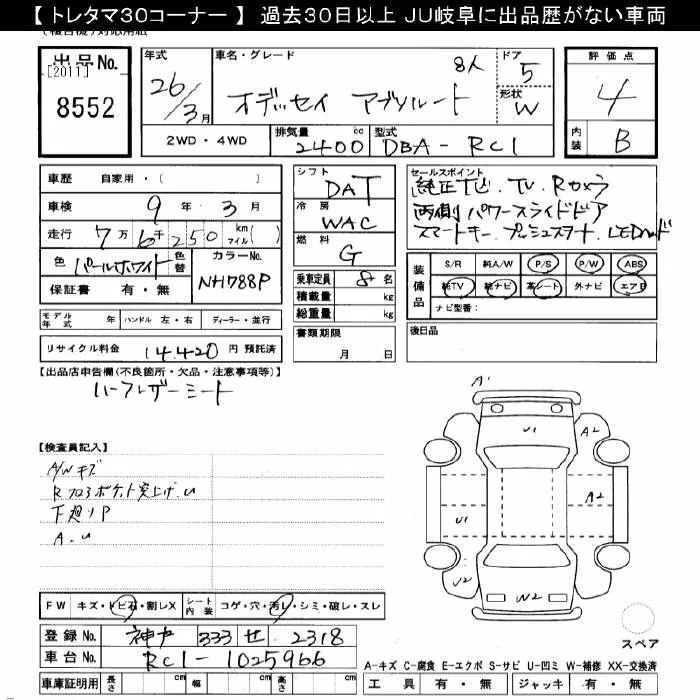 【 トレタマ30コーナー 】 過去30日以上 JU岐阜に出品歴がない車両
出品No.
[2011]
8552
年式
26/3月
車名・グレード
8人
オデッセイ アブソルート
ドア
5
形状
W
評価点
4
内装
B
2WD・4WD
排気量
2400
cc
型式
DBA-RC1
車歴 自家用・( )
車検 9年 3月
走行 7万6千250 kmマイル( )
色 パールホワイト 色替
カラーNo.
NH788P
保証書 有・無
シフト
DAT
冷房
WAC
燃料
G
乗車定員 8名
積載量 kg
総重量 kg
セールスポイント
純正ナビ.TV.Rカメラ
両側パワースライドドア
スマートキー.プッシュスタート.LED
装備品
S/R 純A/W P/S P/W ABS
純TV 純ナビ 革シート 外ナビ エアB
ナビ型番:
モデル年式 年 ハンドル 左・右 ディーラー・並行
リサイクル料金 14,420 円 預託済
書類期限
月 日
後日品
【出品店申告欄(不良箇所・欠品・注意事項等)】
ハーフレザーシート
【検査員記入】
A/Wキズ
Rフロアポケット突上げ.U
下廻りP
A.U
A1
U1
A2
A2
U1
U2
W2
FW キズ・トビ石・割レX シート内装 コゲ・穴・汚レ・シミ・破レ・スレ
登録No. 神戸 333 せ 2318
車台No. RC1-1025966
車庫証明用 長さ cm 幅 cm 高さ cm
スペア
A-キズ C-腐食 E-エクボ S-サビ U-凹ミ W-補修 XX-交換済
工具 有・無 ジャッキ 有・無